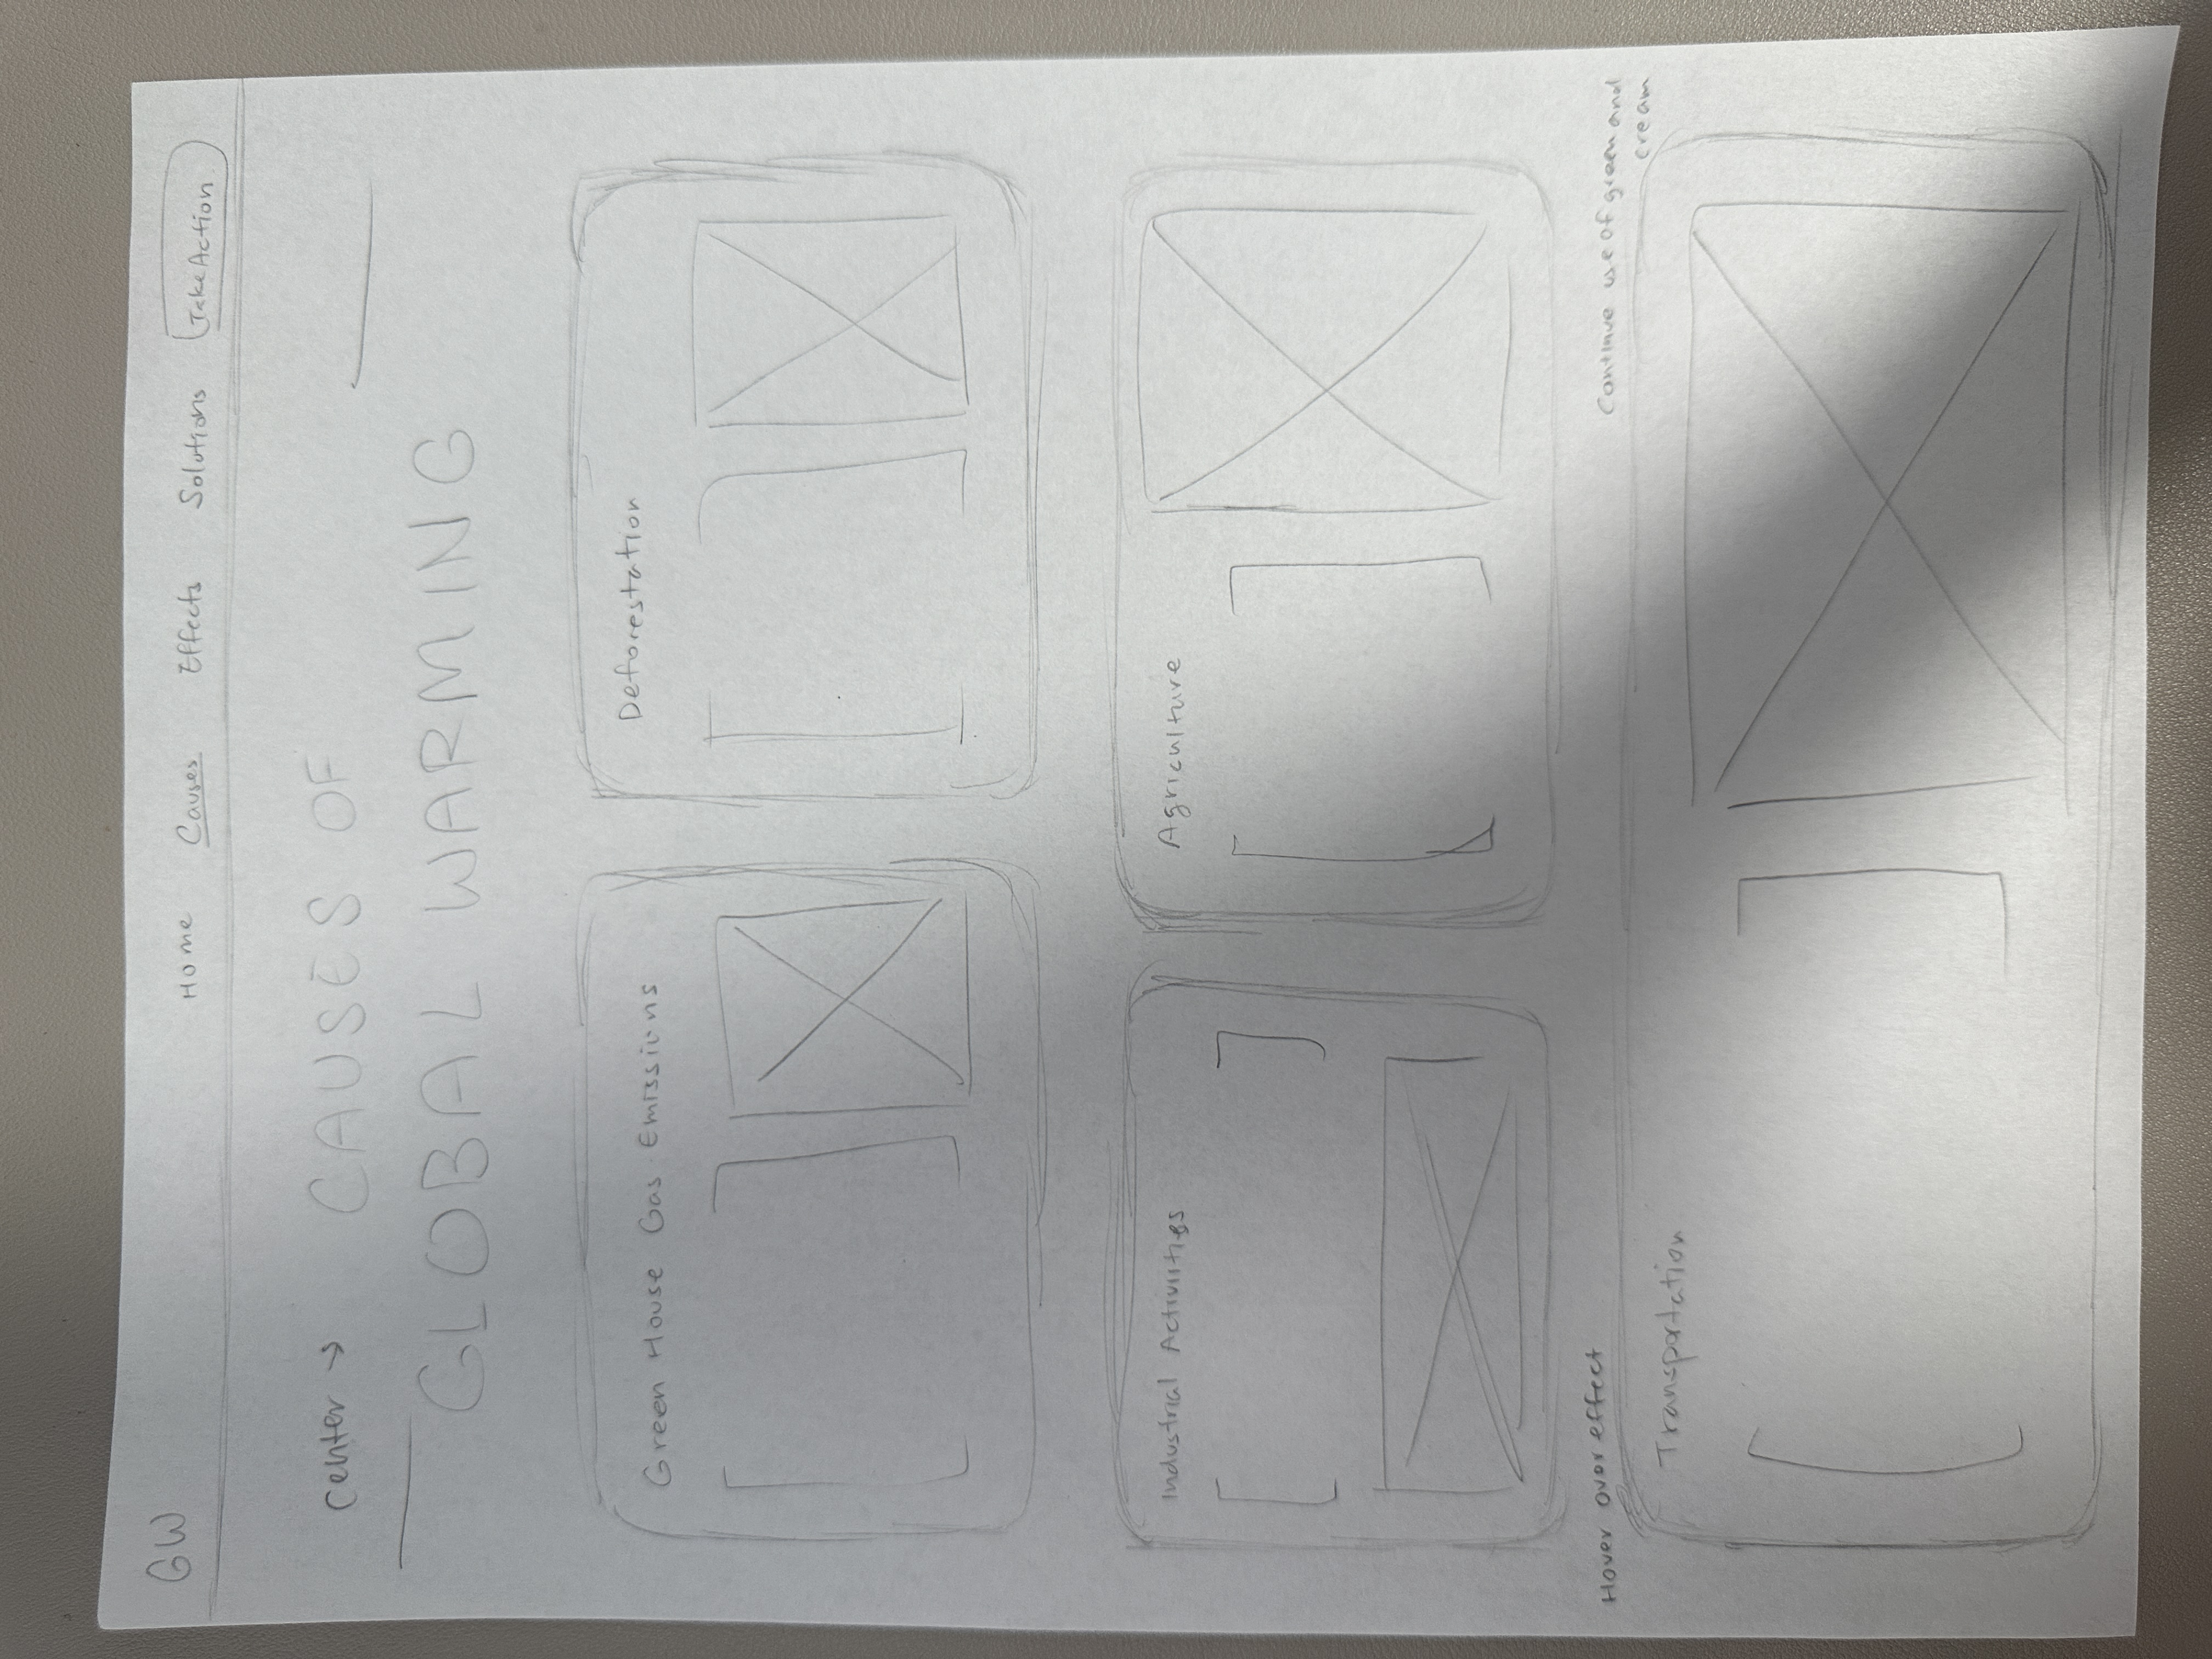 GW
Home Causes Effects Solutions Take Action
Center → CAUSES OF
GLOBAL WARMING
Green House Gas Emissions
Deforestation
Industrial Activities
Agriculture
Hover over effect
Continue use of green and
cream
Transportation